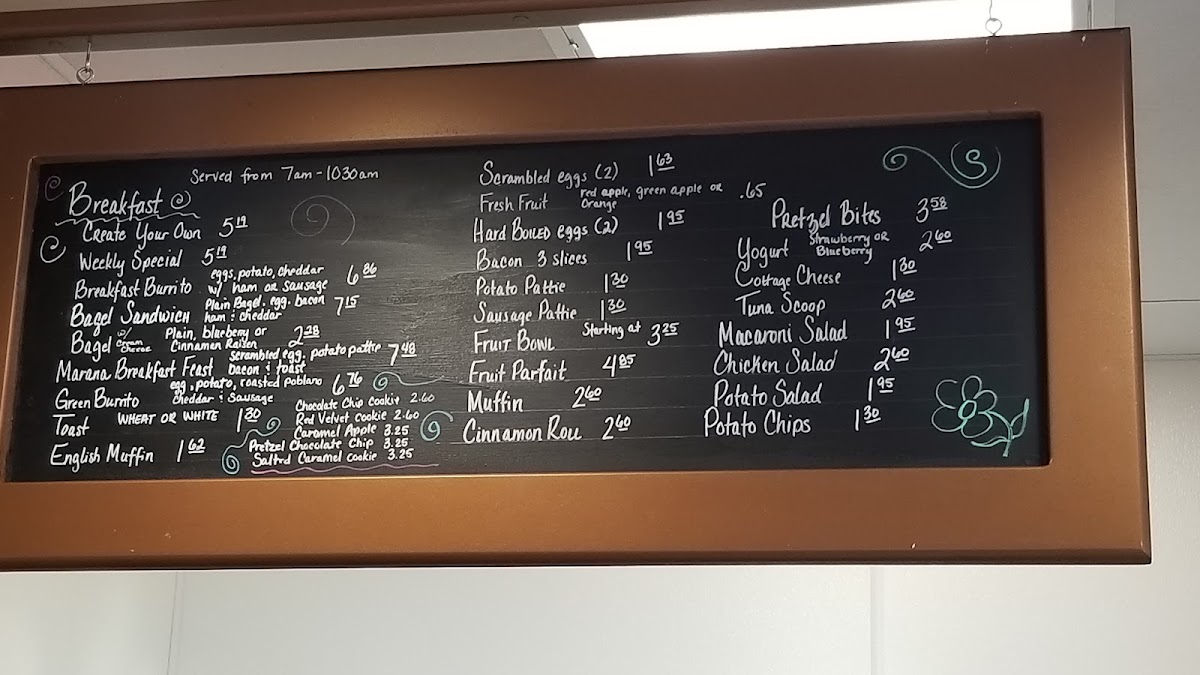 Served from 7am-1030am
Breakfast
Create Your Own 5 19
Weekly Special 5 19
Breakfast Burrito eggs, potato, cheddar 6 86
w/ ham or sausage
Bagel Sandwich Plain Bagel, egg, bacon 7 15
ham & cheddar
Bagel w/ Cream Cheese Plain, blueberry or 2 28
Cinnamon Raisen
Marana Breakfast Feast scrambled egg, potato pattie 7 48
bacon & toast
Green Burrito egg, potato, roasted poblano 6 76
cheddar & Sausage
Toast WHEAT OR WHITE 1 30
English Muffin 1 62
Chocolate Chip Cookie 2.60
Red Velvet cookie 2.60
Caramel Apple 3.25
Pretzel Chocolate Chip 3.25
Salted Caramel cookie 3.25
Scrambled eggs (2) 1 63
Fresh Fruit red apple, green apple or .65
Orange
Hard Boiled eggs (2) 1 95
Bacon 3 slices 1 95
Potato Pattie 1 30
Sausage Pattie 1 30
Fruit Bowl Starting at 3 25
Fruit Parfait 4 85
Muffin 2 60
Cinnamon Roll 2 60
Pretzel Bites 3 58
Yogurt Strawberry or 2 60
Blueberry
Cottage Cheese 1 30
Tuna Scoop 2 60
Macaroni Salad 1 95
Chicken Salad 2 60
Potato Salad 1 95
Potato Chips 1 30